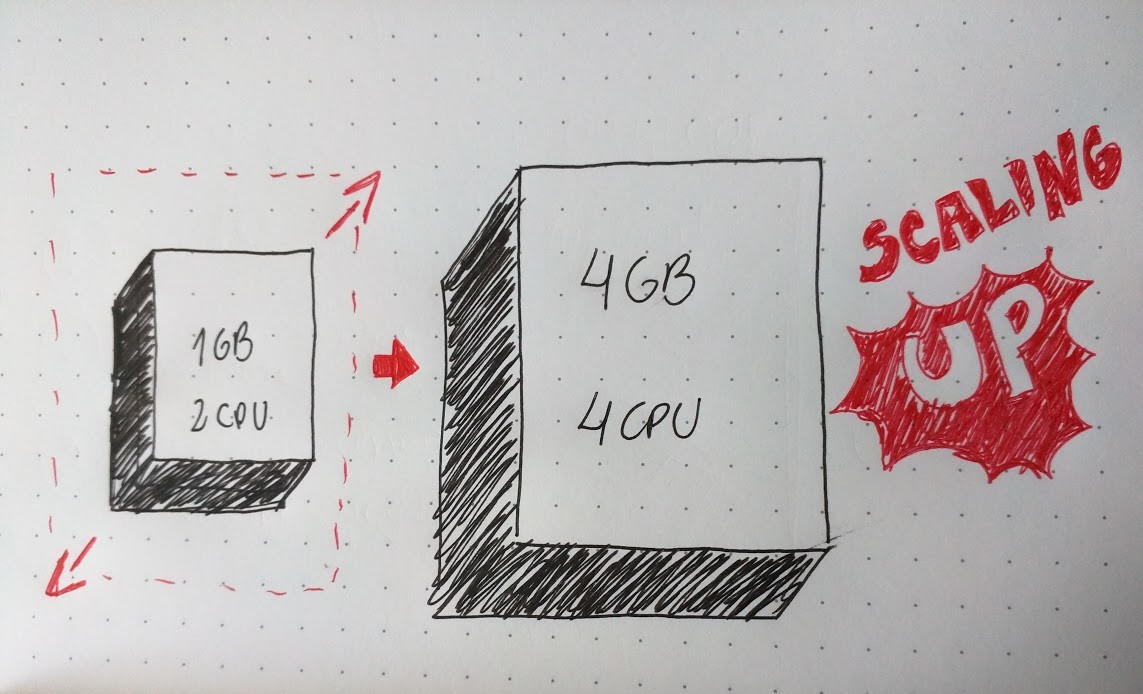 1GB
2 CPU
4GB
4 CPU
SCALING
UP